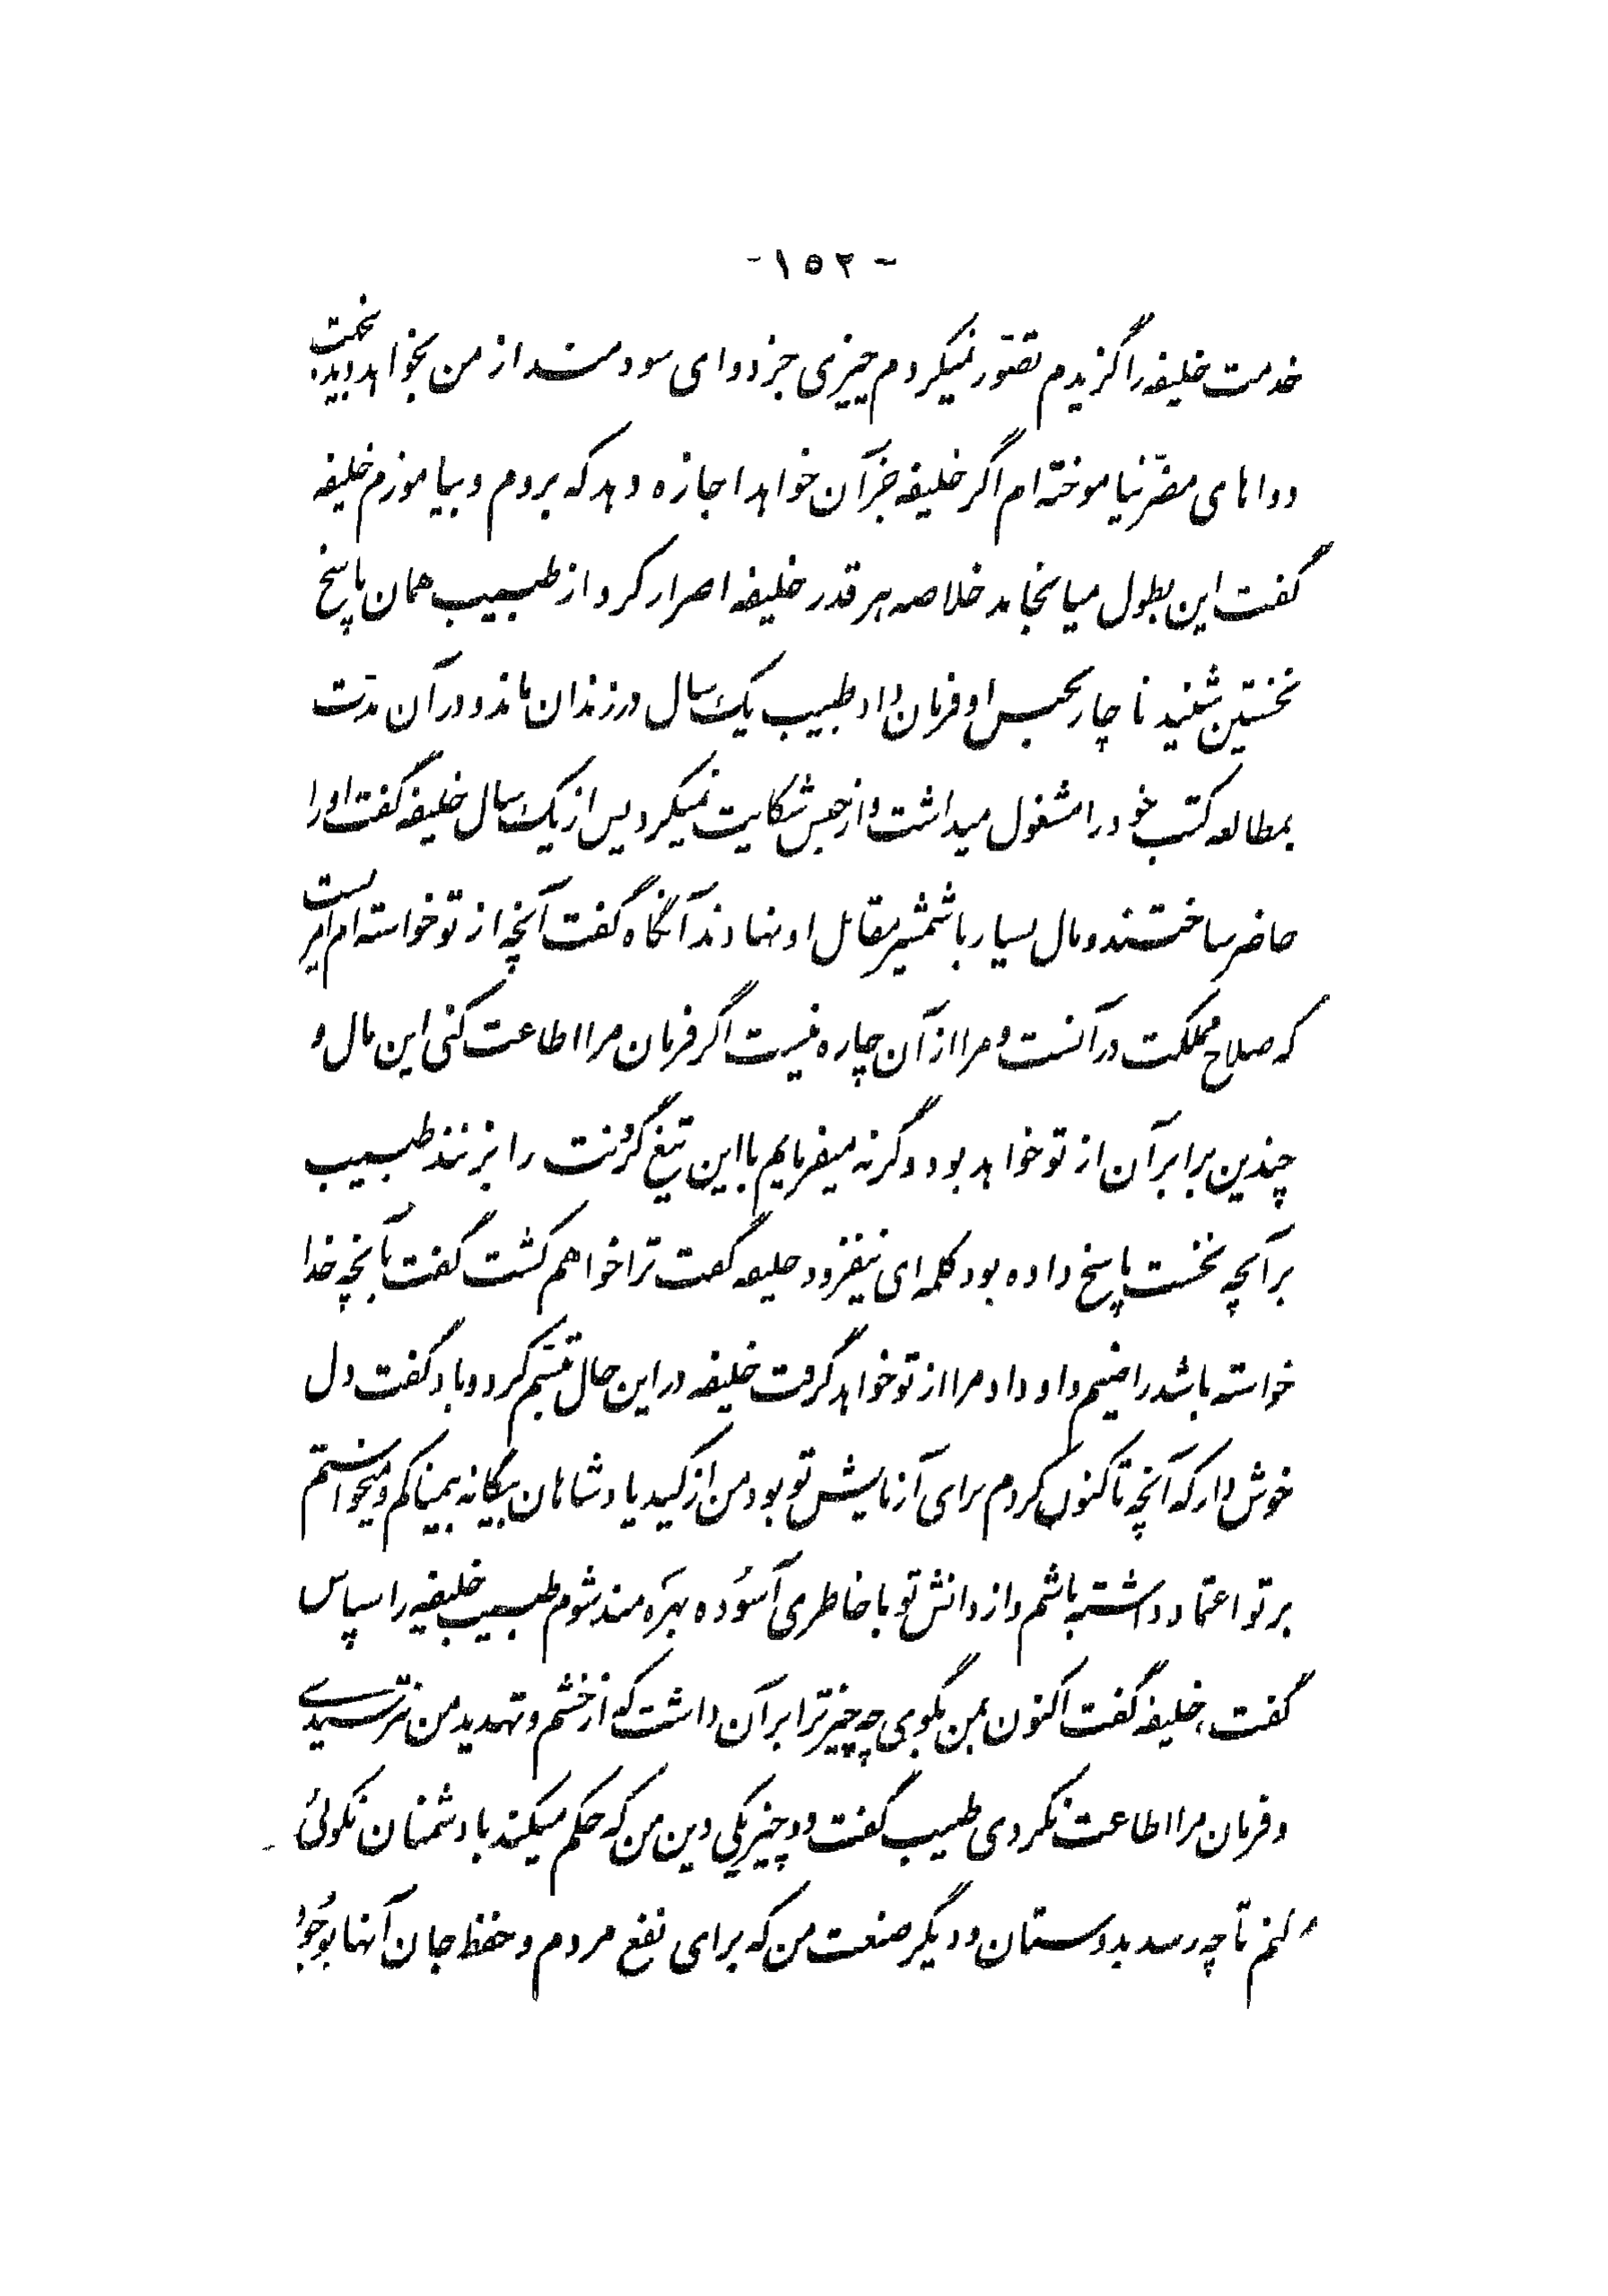 -۱۵۲-
خدمت خلیفه را گزیدم تصوّر نمیکردم چیزی جز دوای سودمند از من بخواهد و بدین جهت
دواهای مضرّ نیاموخته‌ام اگر خلیفه جز آن خواهد اجازه دهد که بروم و بیاموزم خلیفه
گفت این بطول میانجامد خلاصه هر قدر خلیفه اصرار کرد از طبیب همان پاسخ
نخستین شنید ناچار بحبس او فرمان داد طبیب یک سال در زندان ماند و در آن مدّت
بمطالعه کتب خود را مشغول میداشت و از حبس شکایت نمیکرد پس از یک سال خلیفه گفت او را
حاضر ساختند و مال بسیار با شمشیر مقابل او نهادند آنگاه گفت آنچه از تو خواسته‌ام امریست
که صلاح مملکت در آنست و مرا از آن چاره نیست اگر فرمان مرا اطاعت کنی این مال و
چندین برابر آن از تو خواهد بود وگرنه میفرمایم با این تیغ گردنت را بزنند طبیب
بر آنچه نخست پاسخ داده بود کلمه‌ای نیفزود خلیفه گفت ترا خواهم کشت گفت بآنچه خدا
خواسته باشد راضیم و او داد مرا از تو خواهد گرفت خلیفه در این حال تبسّم کرد و باو گفت دل
خوش دار که آنچه تاکنون کردم برای آزمایش تو بود من از کید پادشاهان بیگانه بیمناکم و میخواستم
بر تو اعتماد داشته باشم و از دانش تو با خاطری آسوده بهره‌مند شوم طبیب خلیفه را سپاس
گفت، خلیفه گفت اکنون بمن بگوی چه چیز ترا بر آن داشت که از خشم و تهدید من نترسیدی
و فرمان مرا اطاعت نکردی طبیب گفت دو چیز یکی دین من که حکم میکند با دشمنان نکوئی
کنم تا چه رسد بدوستان و دیگر صنعت من که برای نفع مردم و حفظ جان آنها بوجود